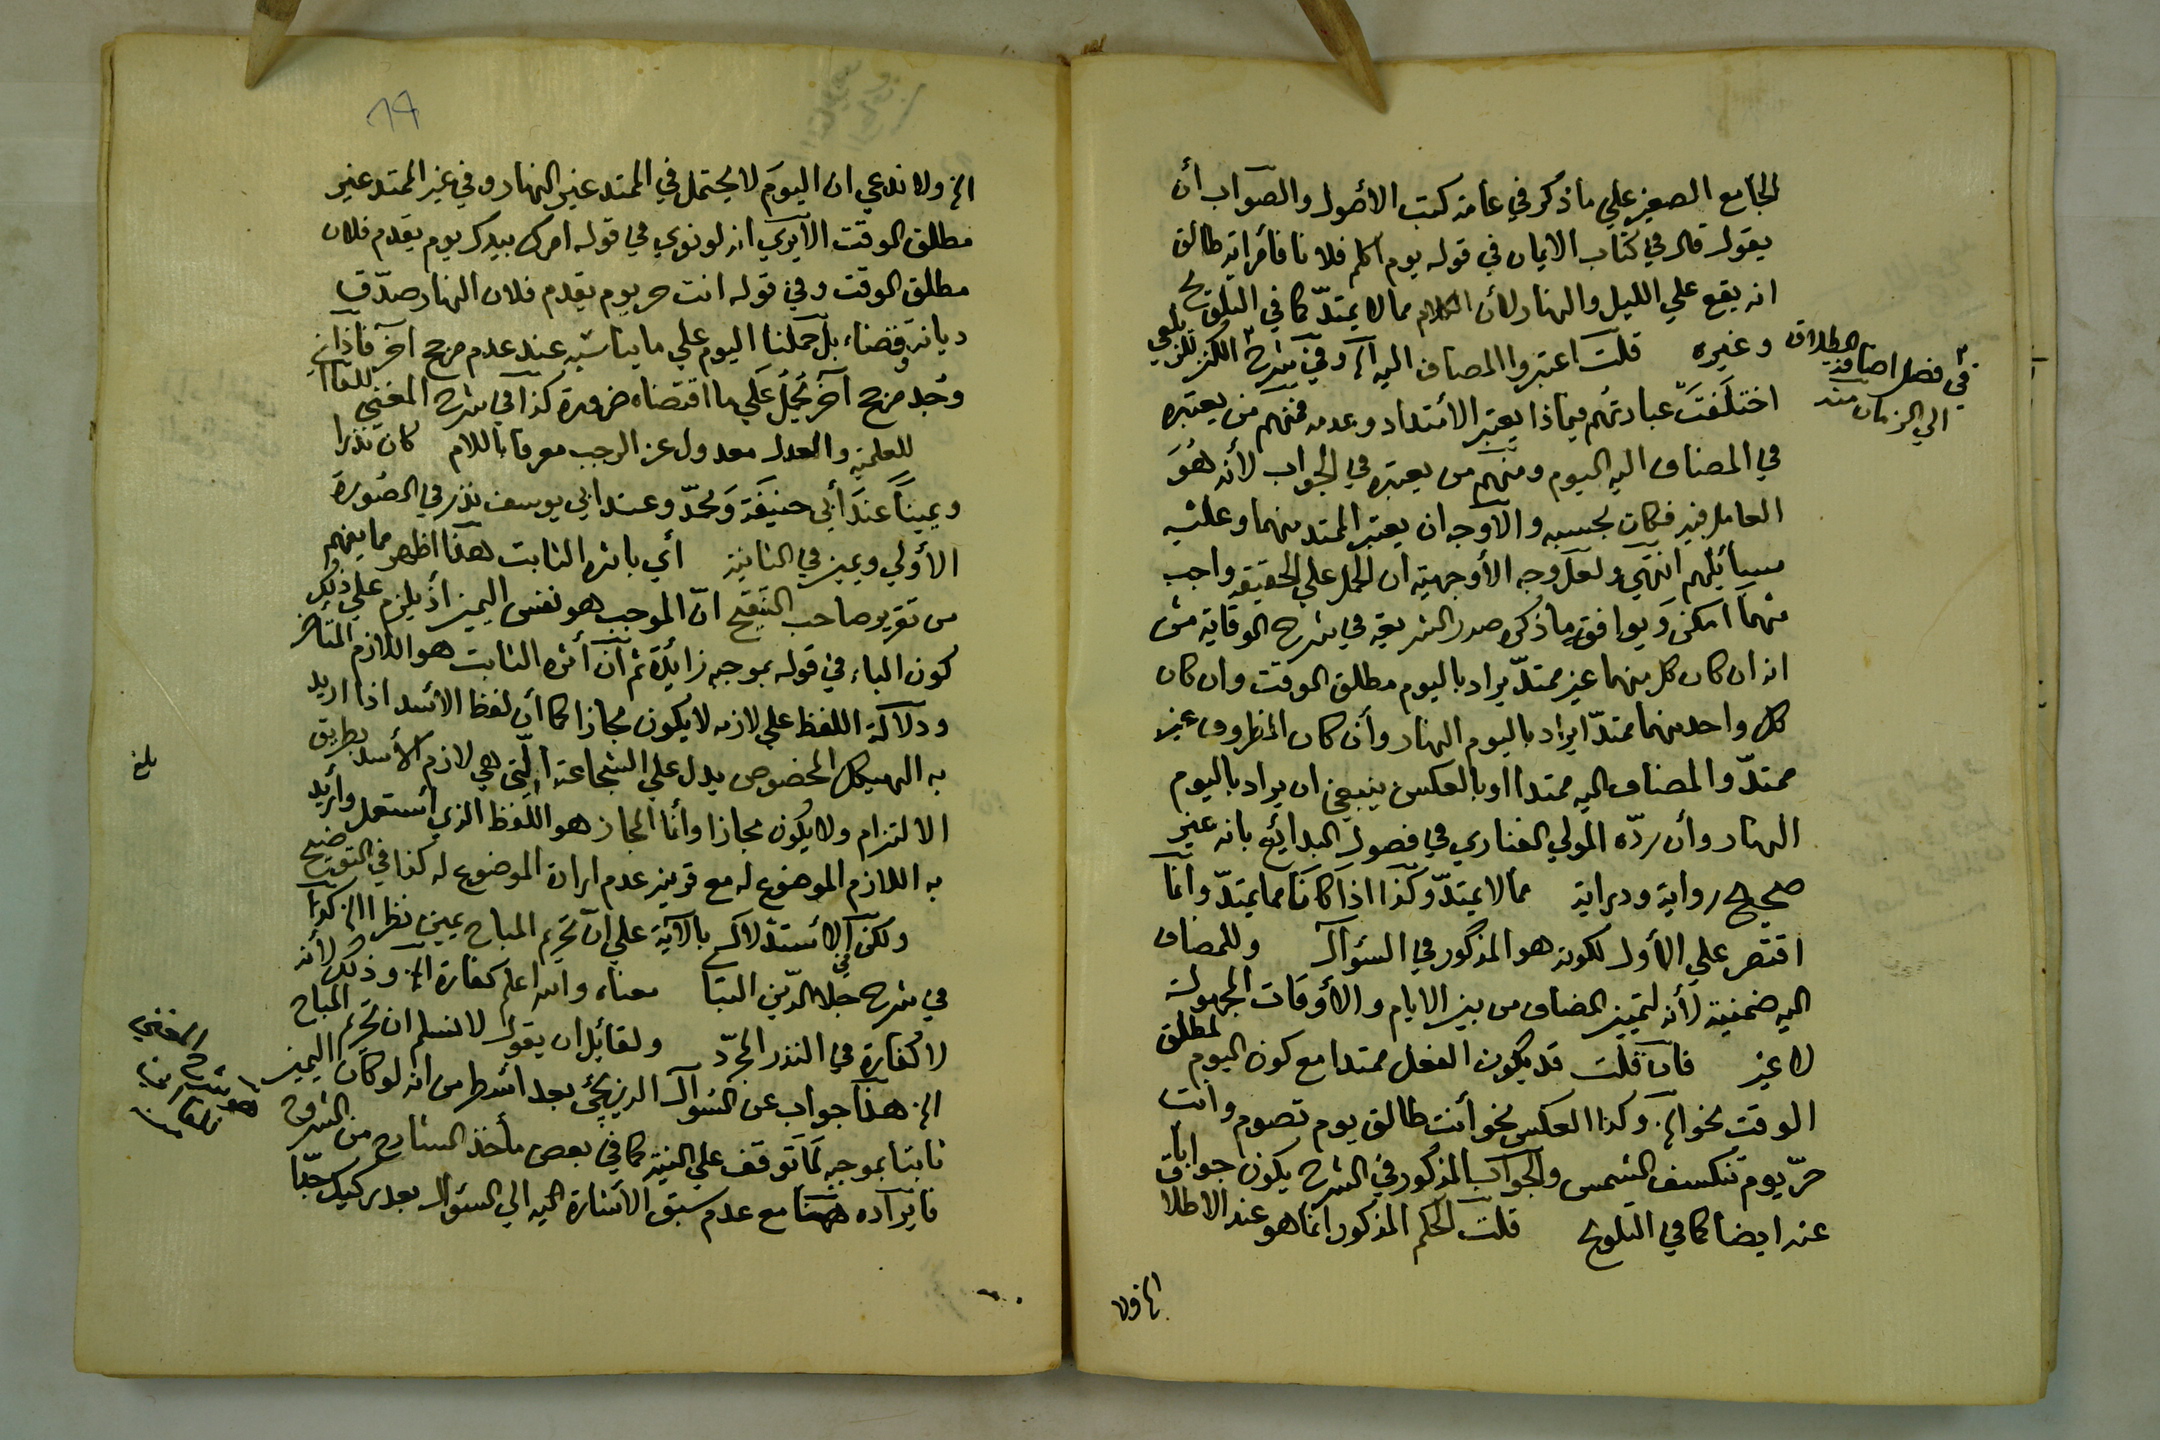 الجامع الصغير علي ما ذكر في عامة كتب الأصول والصواب أن
يقول قال في كتاب الايمان في قوله يوم اكلم فلانا فامرأته طالق
انه يقع علي الليل والنهار لأن الكلام مما لا يمتد كما في التلويح
وغيره قلت اعتبروا المضاف اليه الخ وفي شرح الكنز للزيلعي
في فصل اضافة الطلاق
الي الزمان منه
اختلفت عبارتهم فيماذا يعتبر الأمتداد وعدمه فمنهم من يعتبره
في المضاف اليه اليوم ومنهم من يعتبره في الجواب لأنه هو
العامل فيه فكان بحسبه والأوجه ان يعتبر الممتد منهما وعليه
مسائيلهم انتهي ولعل وجه الأوجهية ان الحمل علي الحقيقة واجب
مهما امكن ويوافقه ما ذكره صدر الشريعة في شرح الوقاية من
انه ان كان كل منهما غير ممتد يراد باليوم مطلق الوقت وان كان
كل واحد منهما ممتدا يراد باليوم النهار وأن كان المظروف غير
ممتد والمضاف اليه ممتدا او بالعكس ينبغي ان يراد باليوم
النهار وأن ردّه المولي الفناري في فصول البدائع بانه غير
صحيح رواية ودراية مما لا يمتد وكذا اذا كانا مما يمتد وانما
اقتصر علي الأول لكونه هو المذكور في السؤال وللمضاف
اليه ضمنية لأنه لتمييز المضاف من بين الايام والأوقات المجهولة
لا غير فان قلت قد يكون الفعل ممتدا مع كون اليوم لمطلق
الوقت نحو الخ وكذا العكس نحو أنت طالق يوم تصوم وانت
حرّ يوم تنكسف الشمس والجواب المذكور في الشرح يكون جوابا
عنه ايضا كما في التلويح قلت الحكم المذكور انما هو عند الاطلاق
الخ ولا
الخ ولا ندعي ان اليوم لا يحتمل في الممتد غير النهار وفي غير الممتد غير
مطلق الوقت الا يري انه لو نوي في قوله امرك بيدك يوم يقدم فلان
مطلق الوقت وفي قوله انت حر يوم يقدم فلان النهار صدّق
ديانة وقضاء بل حملنا اليوم علي ما يناسبه عند عدم مرجح آخر فاذا
وُجد مرجح آخر يُحمل علي ما اقتضاه ضرورة كذا في شرح المغني للقاآني
للعلمية والعدل معدول عن الرجب معرفا باللام كان نذرا
ويمينا عند أبي حنيفة ومحمّد وعند ابي يوسف نذر في الصورة
الأولي ويمين في الثانية أي باثره الثابت هذا اظهر مما يفهم
من تقرير صاحب التنقيح انّ الموجب هو نفس اليمين اذ يلزم علي ذلك
كون الباء في قوله بموجبه زائدة ثم ان أثره الثابت هو اللازم المتأخر
ودلالة اللفظ علي لازمه لا يكون مجازا كما أن لفظ الاسد اذا اريد
به الهيكل المخصوص يدل علي الشجاعة الّتي هي لازم الأسد بطريق
بلغ
الالتزام ولا يكون مجازا وأنما المجاز هو اللّفظ الذي استعمل وأريد
به اللازم الموضوع له مع قرينة عدم ارادة الموضوع له كذا في التوضيح
ولكن الأستدلال بالآية علي ان تحريم المباح يمين نظرا الخ كذا
في شرح جلال الدّين التبا في معناه والله اعلم كفارة الخ وذلك لأنه
لا كفارة في النذر المجرّد ولقائل ان يقول لا نسلم ان تحريم المباح
الخ هذا جواب عن السؤال الذي يجئ بعد اسطر من انه لو كان اليمين
ثابتا بموجبه لما توقف علي النية كما في بعض مأخذ الشارح من الشروح
فايراده ههنا مع عدم سبق الأشارة اليه الي السؤال بعد ركيك جدّا